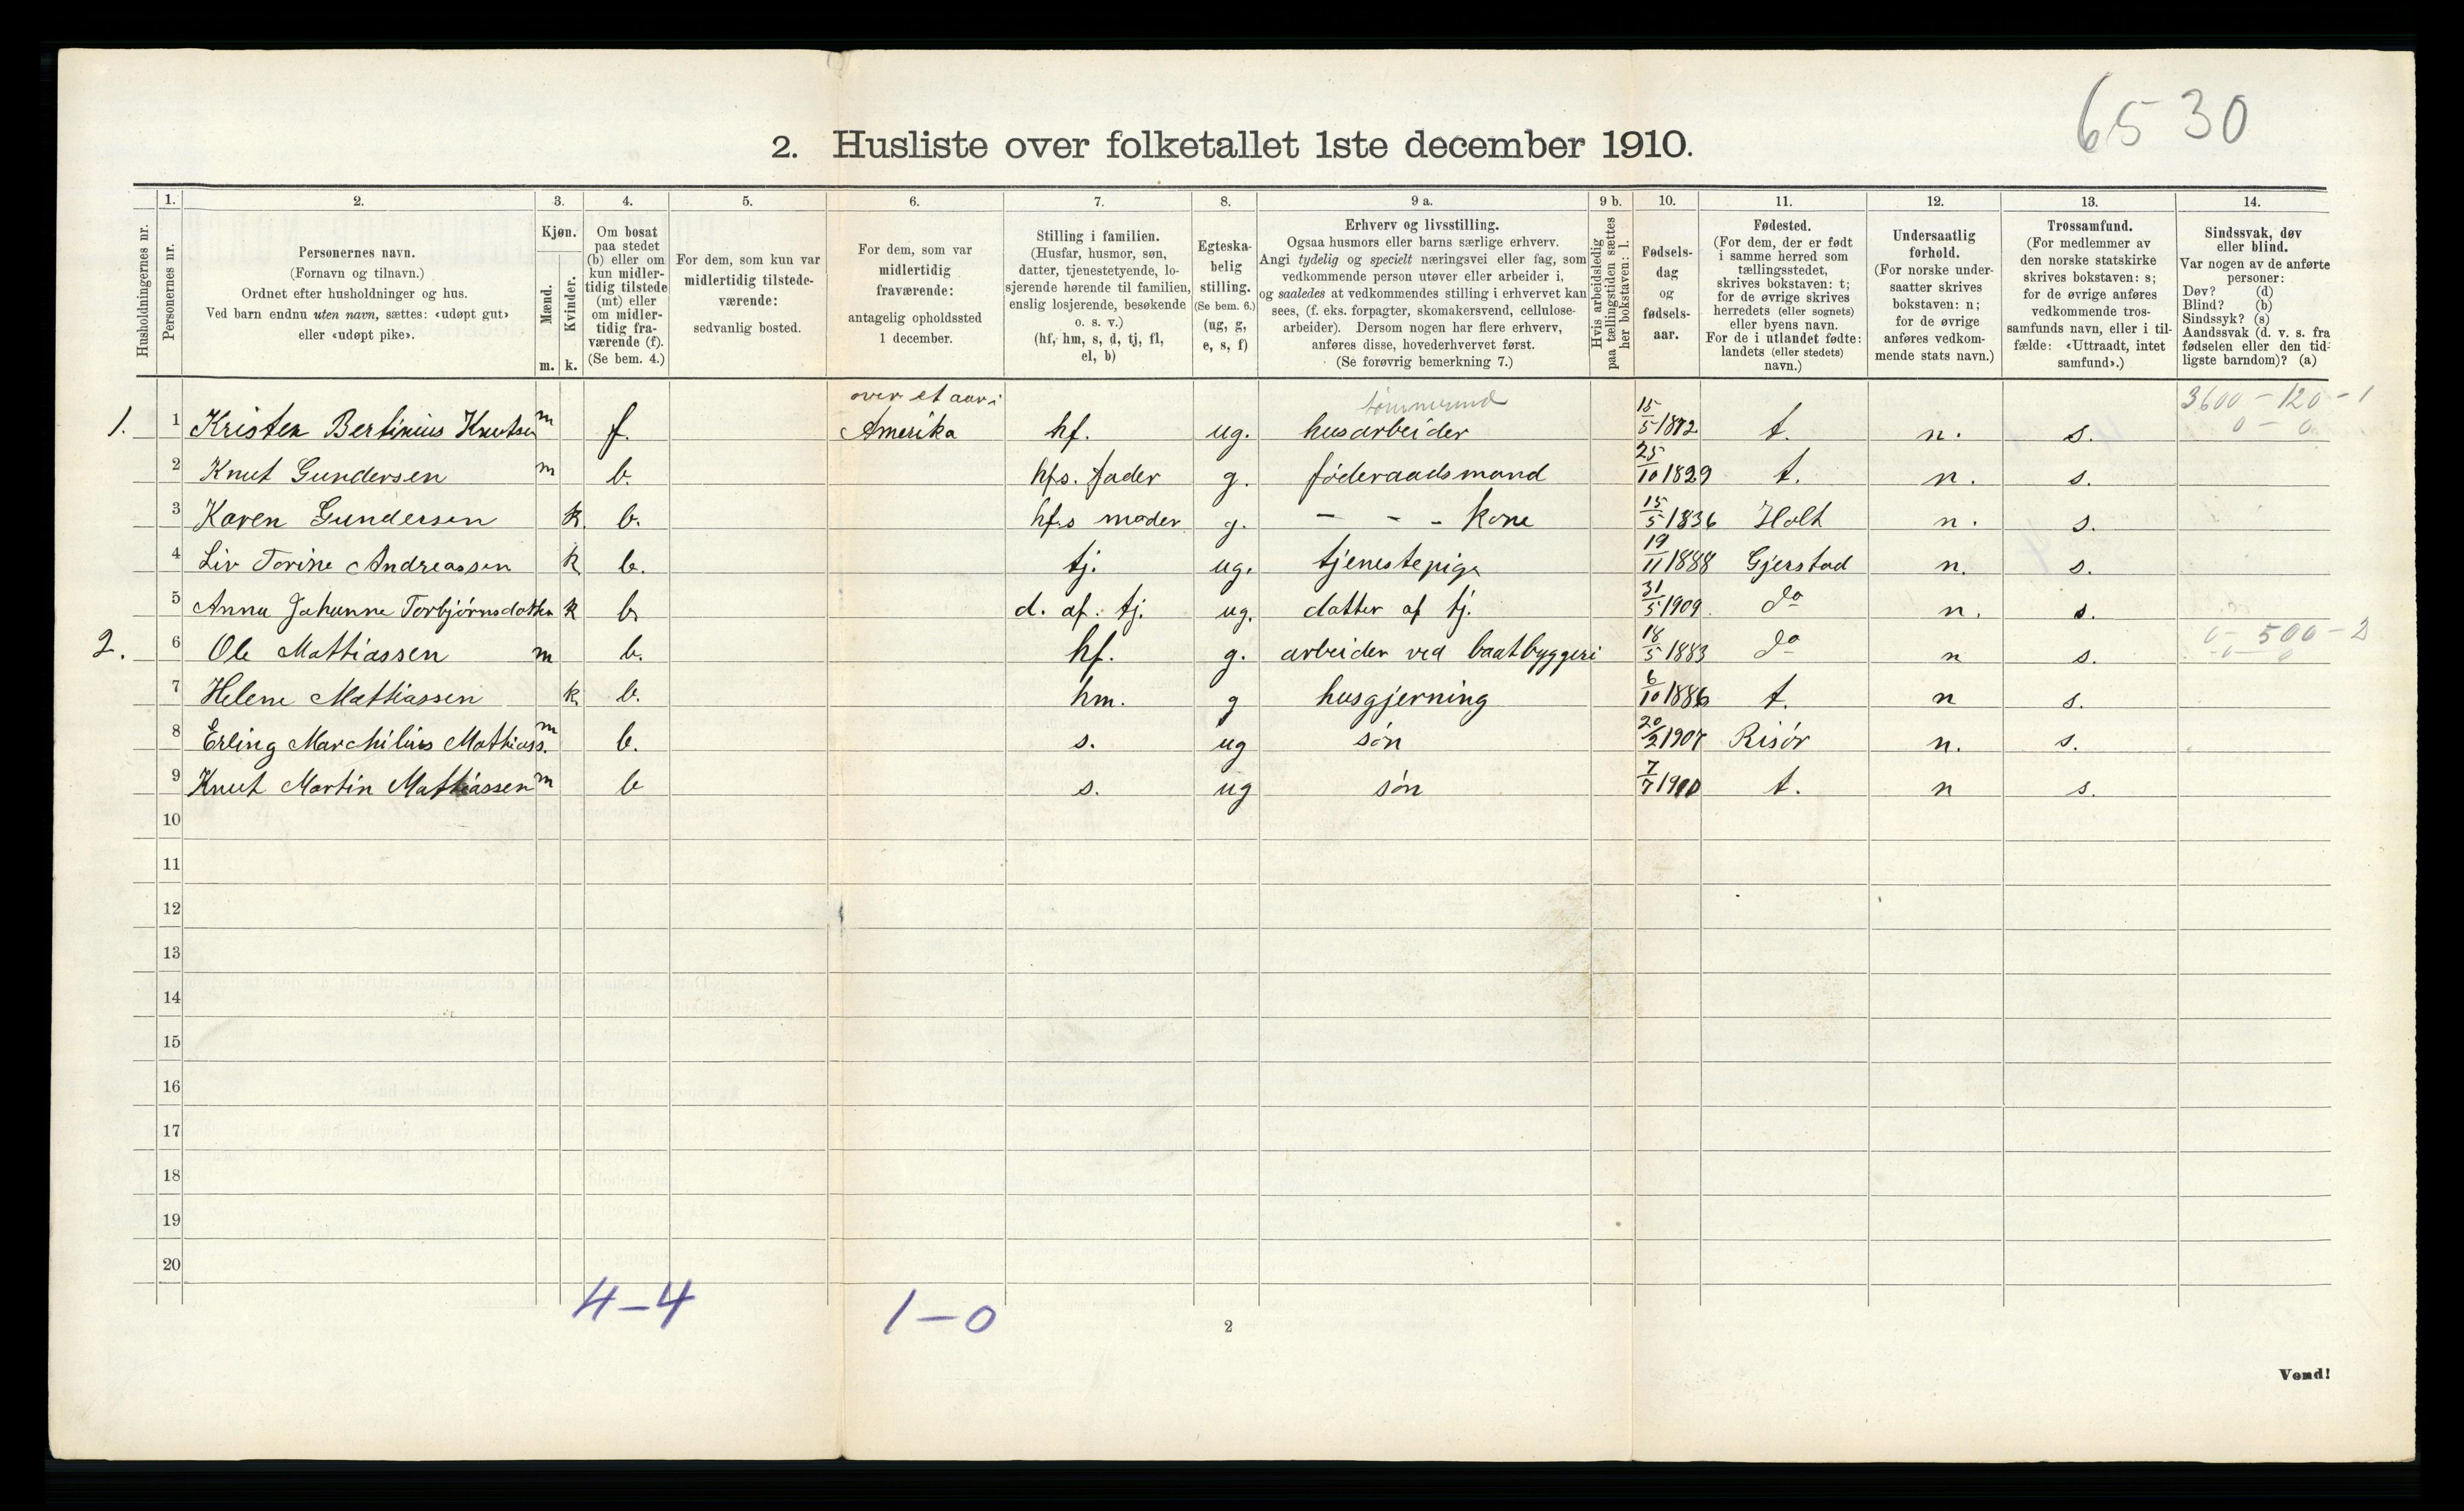 65 30
2. Husliste over folketallet 1ste december 1910.
Husholdningernes nr.
1. Personernes nr.
2. Personernes navn. (Fornavn og tilnavn.) Ordnet efter husholdninger og hus. Ved barn endnu uten navn, sættes: «udøpt gut» eller «udøpt pike».
3. Kjøn. Mænd. m. Kvinder. k.
4. Om bosat paa stedet (b) eller om kun midler-tidig tilstede (mt) eller om midler-tidig fra-værende (f). (Se bem. 4.)
5. For dem, som kun var midlertidig tilstede-værende: sedvanlig bosted.
6. For dem, som var midlertidig fraværende: antagelig opholdssted 1 december.
7. Stilling i familien. (Husfar, husmor, søn, datter, tjenestetyende, lo-sjerende hørende til familien, enslig losjerende, besøkende o. s. v.) (hf, hm, s, d, tj, fl, el, b)
8. Egteska-belig stilling. (Se bem. 6.) (ug, g, e, s, f)
9 a. Erhverv og livsstilling. Ogsaa husmors eller barns særlige erhverv. Angi tydelig og specielt næringsvei eller fag, som vedkommende person utøver eller arbeider i, og saaledes at vedkommendes stilling i erhvervet kan sees, (f. eks. forpagter, skomakersvend, cellulose-arbeider). Dersom nogen har flere erhverv, anføres disse, hovederhvervet først. (Se forøvrig bemerkning 7.)
9 b. Hvis arbeidsledig paa tællingstiden sættes her bokstaven: l.
10. Fødsels-dag og fødsels-aar.
11. Fødested. (For dem, der er født i samme herred som tællingsstedet, skrives bokstaven: t; for de øvrige skrives herredets (eller sognets) eller byens navn. For de i utlandet fødte: landets (eller stedets) navn.)
12. Undersaatlig forhold. (For norske under-saatter skrives bokstaven: n; for de øvrige anføres vedkom-mende stats navn.)
13. Trossamfund. (For medlemmer av den norske statskirke skrives bokstaven: s; for de øvrige anføres vedkommende tros-samfunds navn, eller i til-fælde: «Uttraadt, intet samfund».)
14. Sindssvak, døv eller blind. Var nogen av de anførte personer: Døv? (d) Blind? (b) Sindssyk? (s) Aandssvak (d. v. s. fra fødselen eller den tid-ligste barndom)? (a)
over et aar i 3600 - 120 - 1
1. 1 Kristen Bertinius Knutsen m f. Amerika hf. ug. husarbeider 15/5 1872 t. n. s. 0 - 0
2 Knut Gundersen m b. hfs. fader g. føderaadsmand 25/10 1829 t. n. s.
3 Karen Gundersen k. b. hf.s moder g. - - - kone 15/5 1836 Holt n. s.
4 Liv Torine Andreassen k b. tj. ug. tjenestepige 19/11 1888 Gjerstad n. s.
5 Anna Johanne Torbjørnsdatter k b. d. af. tj. ug. datter af tj. 31/5 1909. do n. s.
2. 6 Ole Mathiassen m b. hf. g. arbeider ved baatbyggeri 18/5 1883 do n s. 0 - 500 - 2
7 Helene Mathiassen k b. hm. g husgjerning 6/10 1886 t. n s.
8 Erling Marchilius Mathiass. m b. s. ug søn 20/2 1907 Risør n. s.
9 Knut Martin Mathiassen m b s. ug søn 7/7 1910 t. n s.
10
11
12
13
14
15
16
17
18
19
20
4-4 1-0
2
Vend!